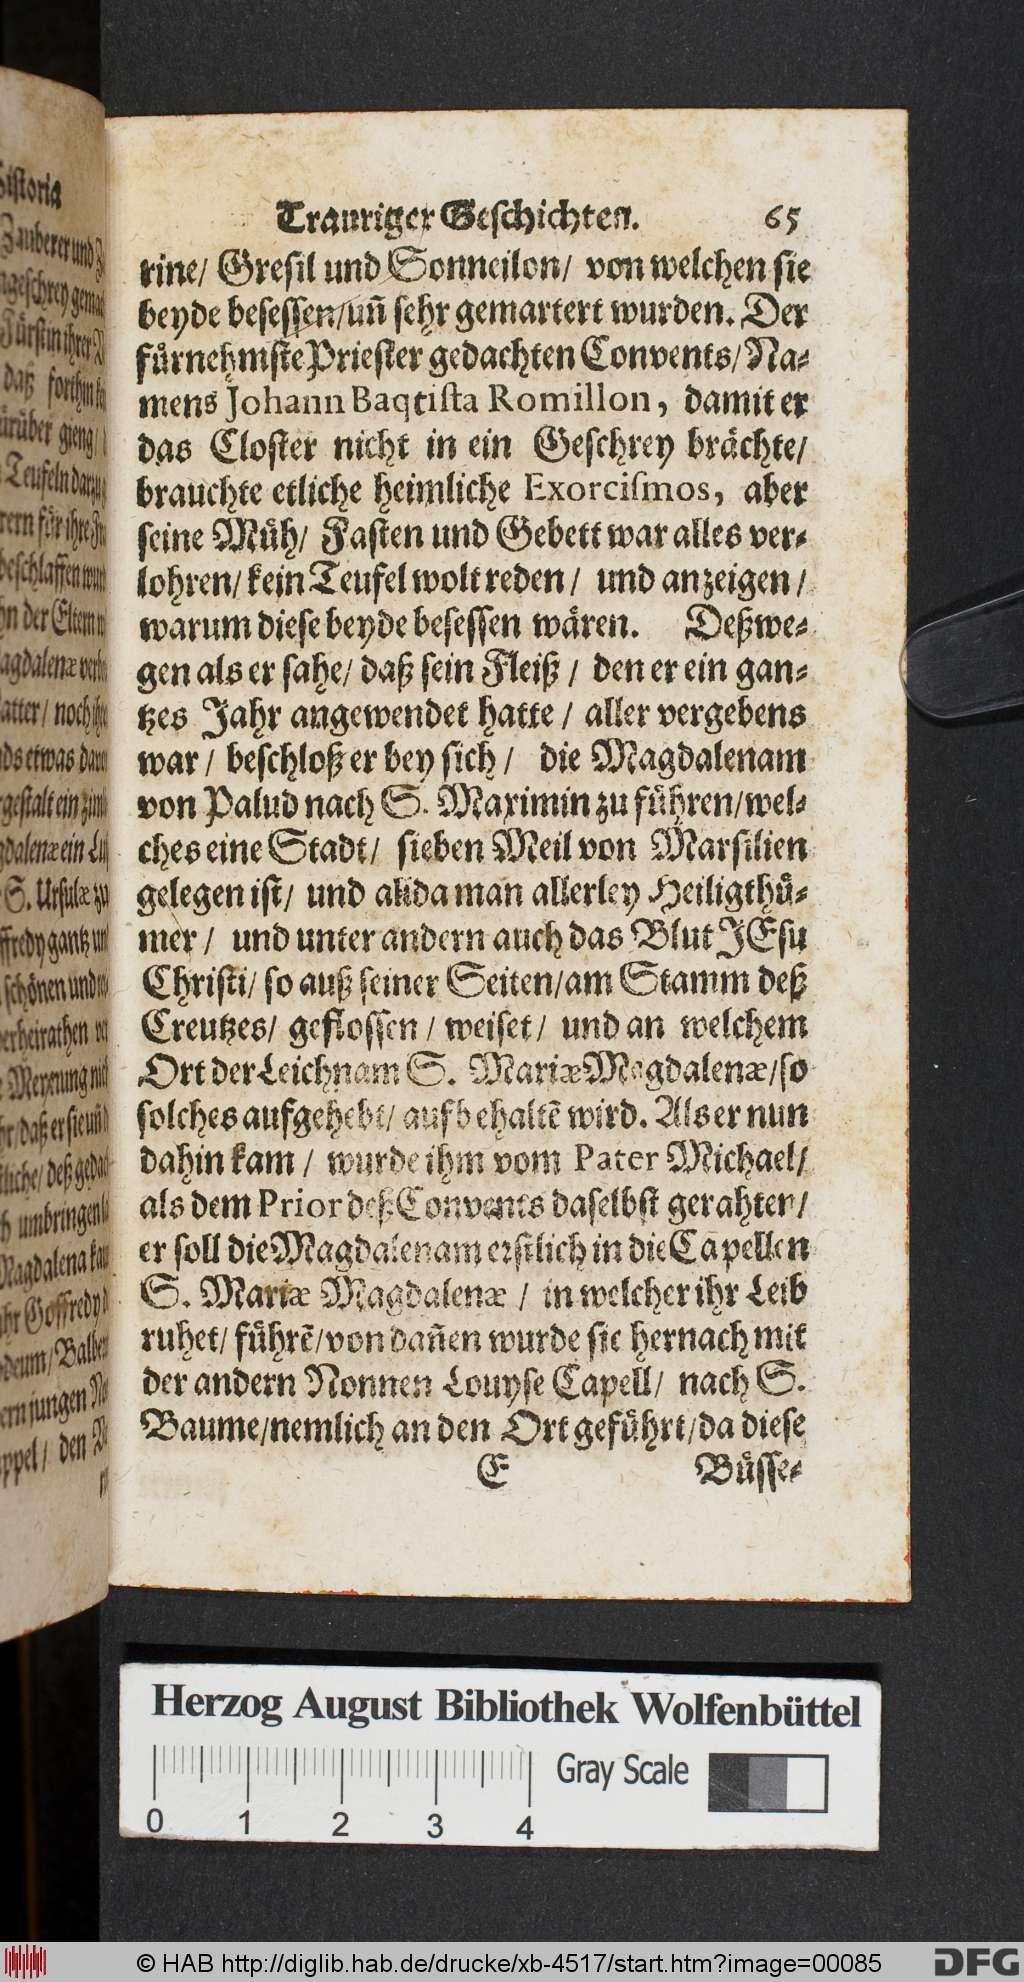 Trauriger Geschichten. 65
rine/ Gresil und Sonneilon/ von welchen sie
beyde besessen/uñ sehr gemartert wurden. Der
fürnehmste Priester gedachten Convents/Na-
mens Johann Baqtista Romillon, damit er
das Closter nicht in ein Geschrey brächte/
brauchte etliche heimliche Exorcismos, aber
seine Müh/ Fasten und Gebett war alles ver-
lohren/ kein Teufel wolt reden / und anzeigen /
warum diese beyde besessen wären. Deßwe-
gen als er sahe/ daß sein Fleiß / den er ein gan-
tzes Jahr angewendet hatte / aller vergebens
war / beschloß er bey sich / die Magdalenam
von Palud nach S. Maximin zu führen/wel-
ches eine Stadt/ sieben Meil von Marsilien
gelegen ist/ und alida man allerley Heiligthü-
mer / und unter andern auch das Blut JEsu
Christi/ so auß seiner Seiten/am Stamm deß
Creutzes/ geflossen / weiset/ und an welchem
Ort der Leichnam S. Mariæ Magdalenæ/so
solches aufgehebt/ aufbehaltẽ wird. Als er nun
dahin kam / wurde ihm vom Pater Michael/
als dem Prior deß Convents daselbst gerahten/
er soll die Magdalenam erstlich in die Capellen
S. Mariæ Magdalenæ / in welcher ihr Leib
ruhet/ führẽ/von dañen wurde sie hernach mit
der andern Nonnen Louyse Capell/ nach S.
Baume/nemlich an den Ort geführt/da diese
E Büsse-
Historia
Zauberer und
daß forthin
Teufeln darzu
S. Ursulæ zu
schönen und
Meynung
Magdalena
jungen
den
Herzog August Bibliothek Wolfenbüttel
Gray Scale
0 1 2 3 4
© HAB http://diglib.hab.de/drucke/xb-4517/start.htm?image=00085
DFG